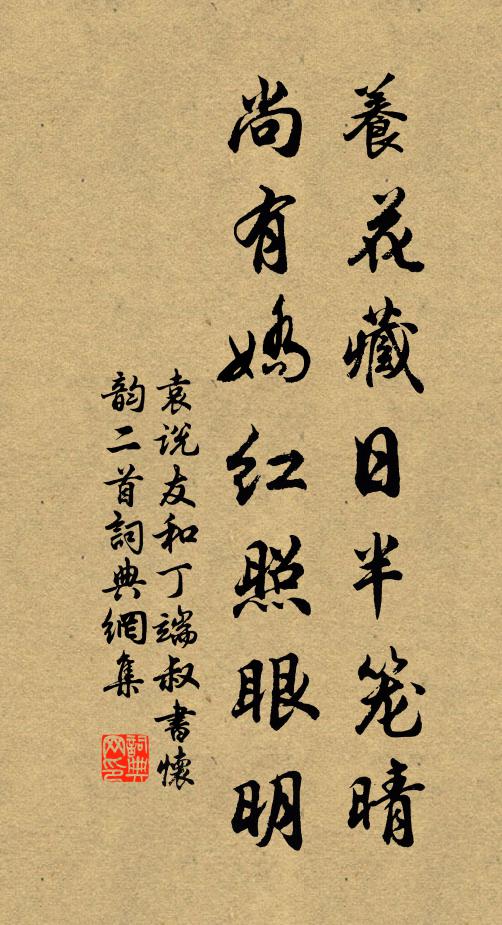 養花藏日半笼晴
尚有嬌紅照眼明
袁说友和丁端叔書懷
韵二首詞典網集
詞典
网印